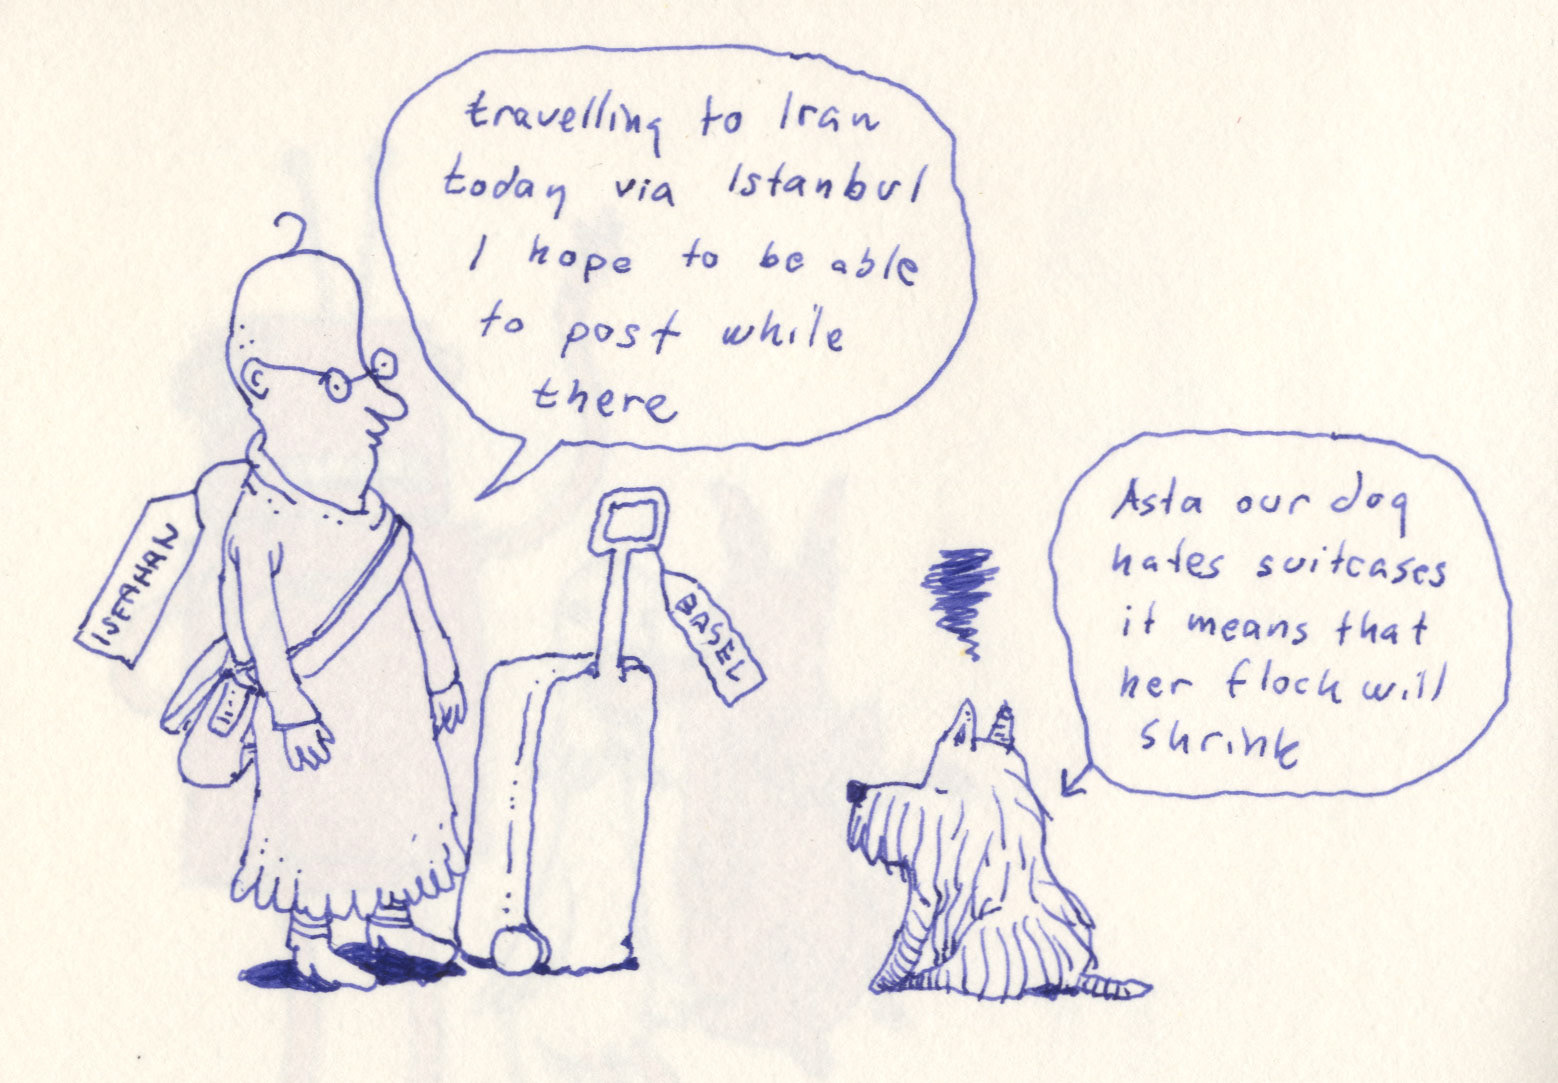 travelling to Iran
today via Istanbul
I hope to be able
to post while
there
ISFAHAN
BASEL
Asta our dog
hates suitcases
it means that
her flock will
shrink